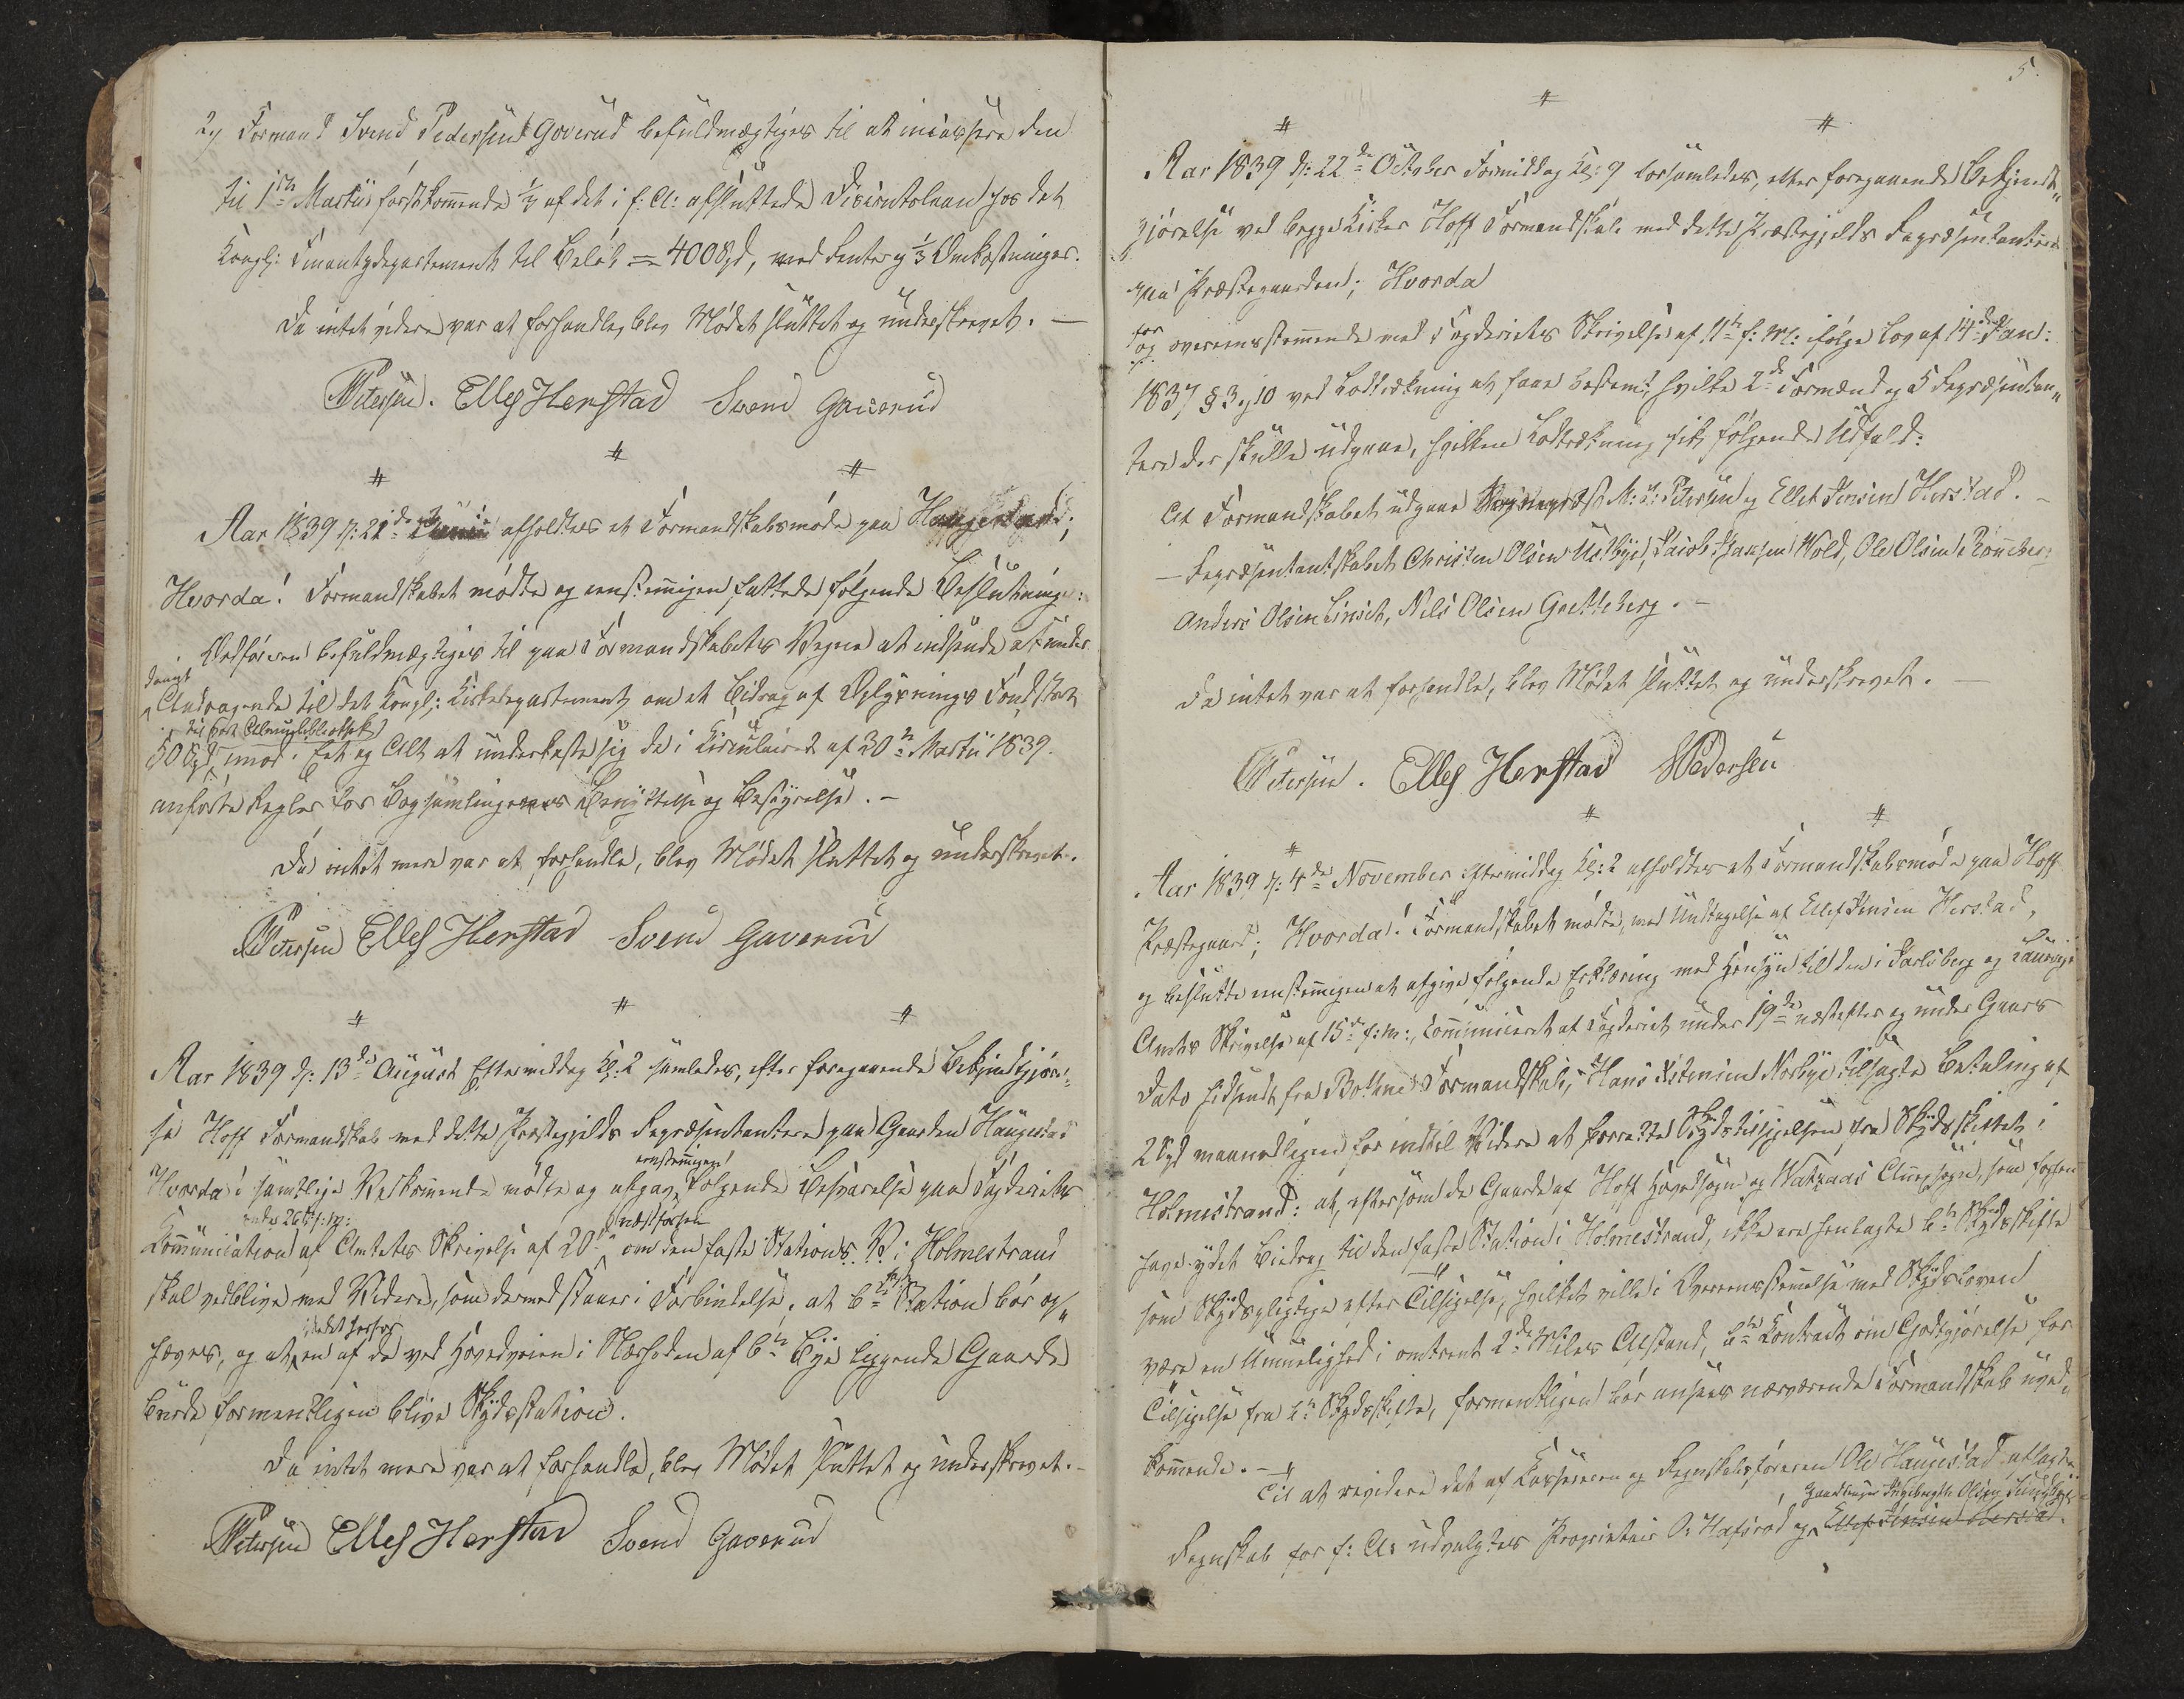 2, Formand Svend Pedersen Goverud befuldmægtiges til at incassere den
til 1ste Martii førstkommende 1/3 af det i f: A: afsluttede Discontolaan hos det
Kongl: Finantsdepartement til Beløb = 400 Spd, med Renter og 1/3 Omkostninger.
Da intet videre var at forhandle, blev Mødet sluttet og underskrevet. —
Petersen. Ellef Herstad Svend Gaverud
# # #
Aar 1839 d: 21de Junii afholdtes et Formandskabsmøde paa Haugestad;
Hvorda! Formandskabet mødte og eenstemmigen fattede følgende Beslutninger:
Ordføreren befuldmægtiges til paa Formandskabets Vegne at indsende et under
danigt
Andragende til det Kongl: Kirkedepartement om et Bidrag af Oplysnings Fondet stort
til Hoffs Almuebibliothek
50 Spd, imod i Eet og Alt at underkaste sig de i Circulaire af 30te Martii 1839.
anførte Regler for Bogsamlingernes Benyttelse og Bestyrelse. —
Da intet mere var at forhandle, blev Mødet sluttet og underskrevet.
Petersen Ellef Herstad Svend Gaverud
# # #
Aar 1839 d: 13de August Eftermiddag Kl: 2 samledes, efter foregaaende Bekjendtgjørel-
se Hoff Formandskab med dette Præstegjelds Repræsentantere paa Gaarden Haugestad
eenstemmigen
Hvorda! samtlige Vedkommende mødte og afgav følgende Besvarelse paa Fogderiets
under 26de f: M: næstforhen
Communication af Amtets Skrivelse af 20de om den faste Station i Holmestrand
skal vedblive med Videre, som dermed staaer i Forbindelse, at bte faste Station bør op-
istedet herfor
hæves, og at en af de ved Hovedveien i Nærheden af bte Bye liggende Gaarde
burde formentligen blive Skydsstation.
Da intet mere var at forhandle, blev Mødet sluttet og underskrevet. —
Petersen Ellef Herstad Svend Gaverud
5.
# # #
Aar 1839 d: 22de October Formiddag Kl: 9 forsamledes, efter foregaaende Bekjendt-
gjørelse ved begge Kirker Hoff Formandskab med dette Præstegjelds Repræsentantere
paa Præstegaarden; Hvorda
for
og overeensstemmende med Fogderiets Skrivelse af 11te f: M: ifølge Lov af 14de Jan:
1837 § 3 og 10 ved Lodtrækning at faae bestemt, hvilke 2de Formænd og 5 Repræsentan-
tere der skulle udgaae, hvilken Lodtrækning fik følgende Udfald:
Af Formandskabet udgaae M: Petersen og Ellef Jensen Herstad. —
— Repræsentantskabet Christen Olsen Ustbye, Jacob Hansen Wold, Ole Olsen Rønneberg
Anders Olsen Linset, Nils Olsen Gretteberg. —
Da intet var at forhandle, blev Mødet sluttet og underskrevet. —
Petersen. Ellef Herstad SPedersen
# # #
Aar 1839 d: 4de November Eftermiddag Kl: 2 afholdtes et Formandskabsmøde paa Hoff
Præstegaard; Hvorda! Formandskabet mødte, med Undtagelse af Ellef Jensen Herstad,
og besluttede eenstemmigen at afgive følgende Erklæring med Hensyn til den i Jarlsberg og Laurvigs
Amts Skrivelse af 15de f: M:, communiceret af Fogderiet under 19de næstefter og under Gaars
Dato hidsendt fra Bothne Formandskab, Hans Nørbye tilsagte Betaling af
2 Spd maanedligen for indtil Videre at forrette Skydstilsigelsen fra Skydsskiftet i
Holmestrand: at, eftersom de Gaarde af Hoff Hovedsogn og Watsaas Annexsogn, som forhen
have ydet Bidrag til den faste Station i Holmestrand, ikke ere henlagte bte Skydsskifte
som Skydspligtige efter Tilsigelse, hvilket ville i Overeensstemmelse med Skydsloven
være en Umuelighed i omtrent 2de Miles Afstand, bte Contract om Godtgjørelse for
Tilsigelse fra bte Skydsskifte, formentligen bør ansees nærværende Formandskab uved-
kommende. —
Til at revidere det af Kasserer og Regnskabsføreren Ole Haugestad aflagte
Gaardbruger Ingebregth Olsen
Regnskab for f: A: udvalgtes Proprietair O: Hafsrød og Ellef Jensen Herstad.